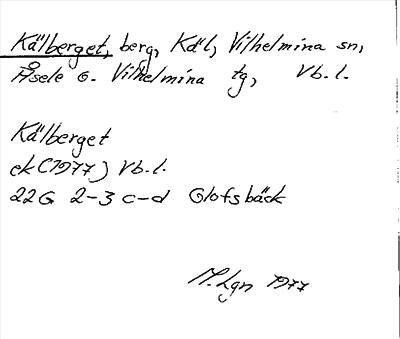 Kälberget, berg, Käl, Vilhelmina sn,
Åsele o. Vilhelmina tg, Vb.l.
Kälberget
ek (1977) Vb.l.
22G 2-3 c-d Olofsbäck
M. Lgn 1977